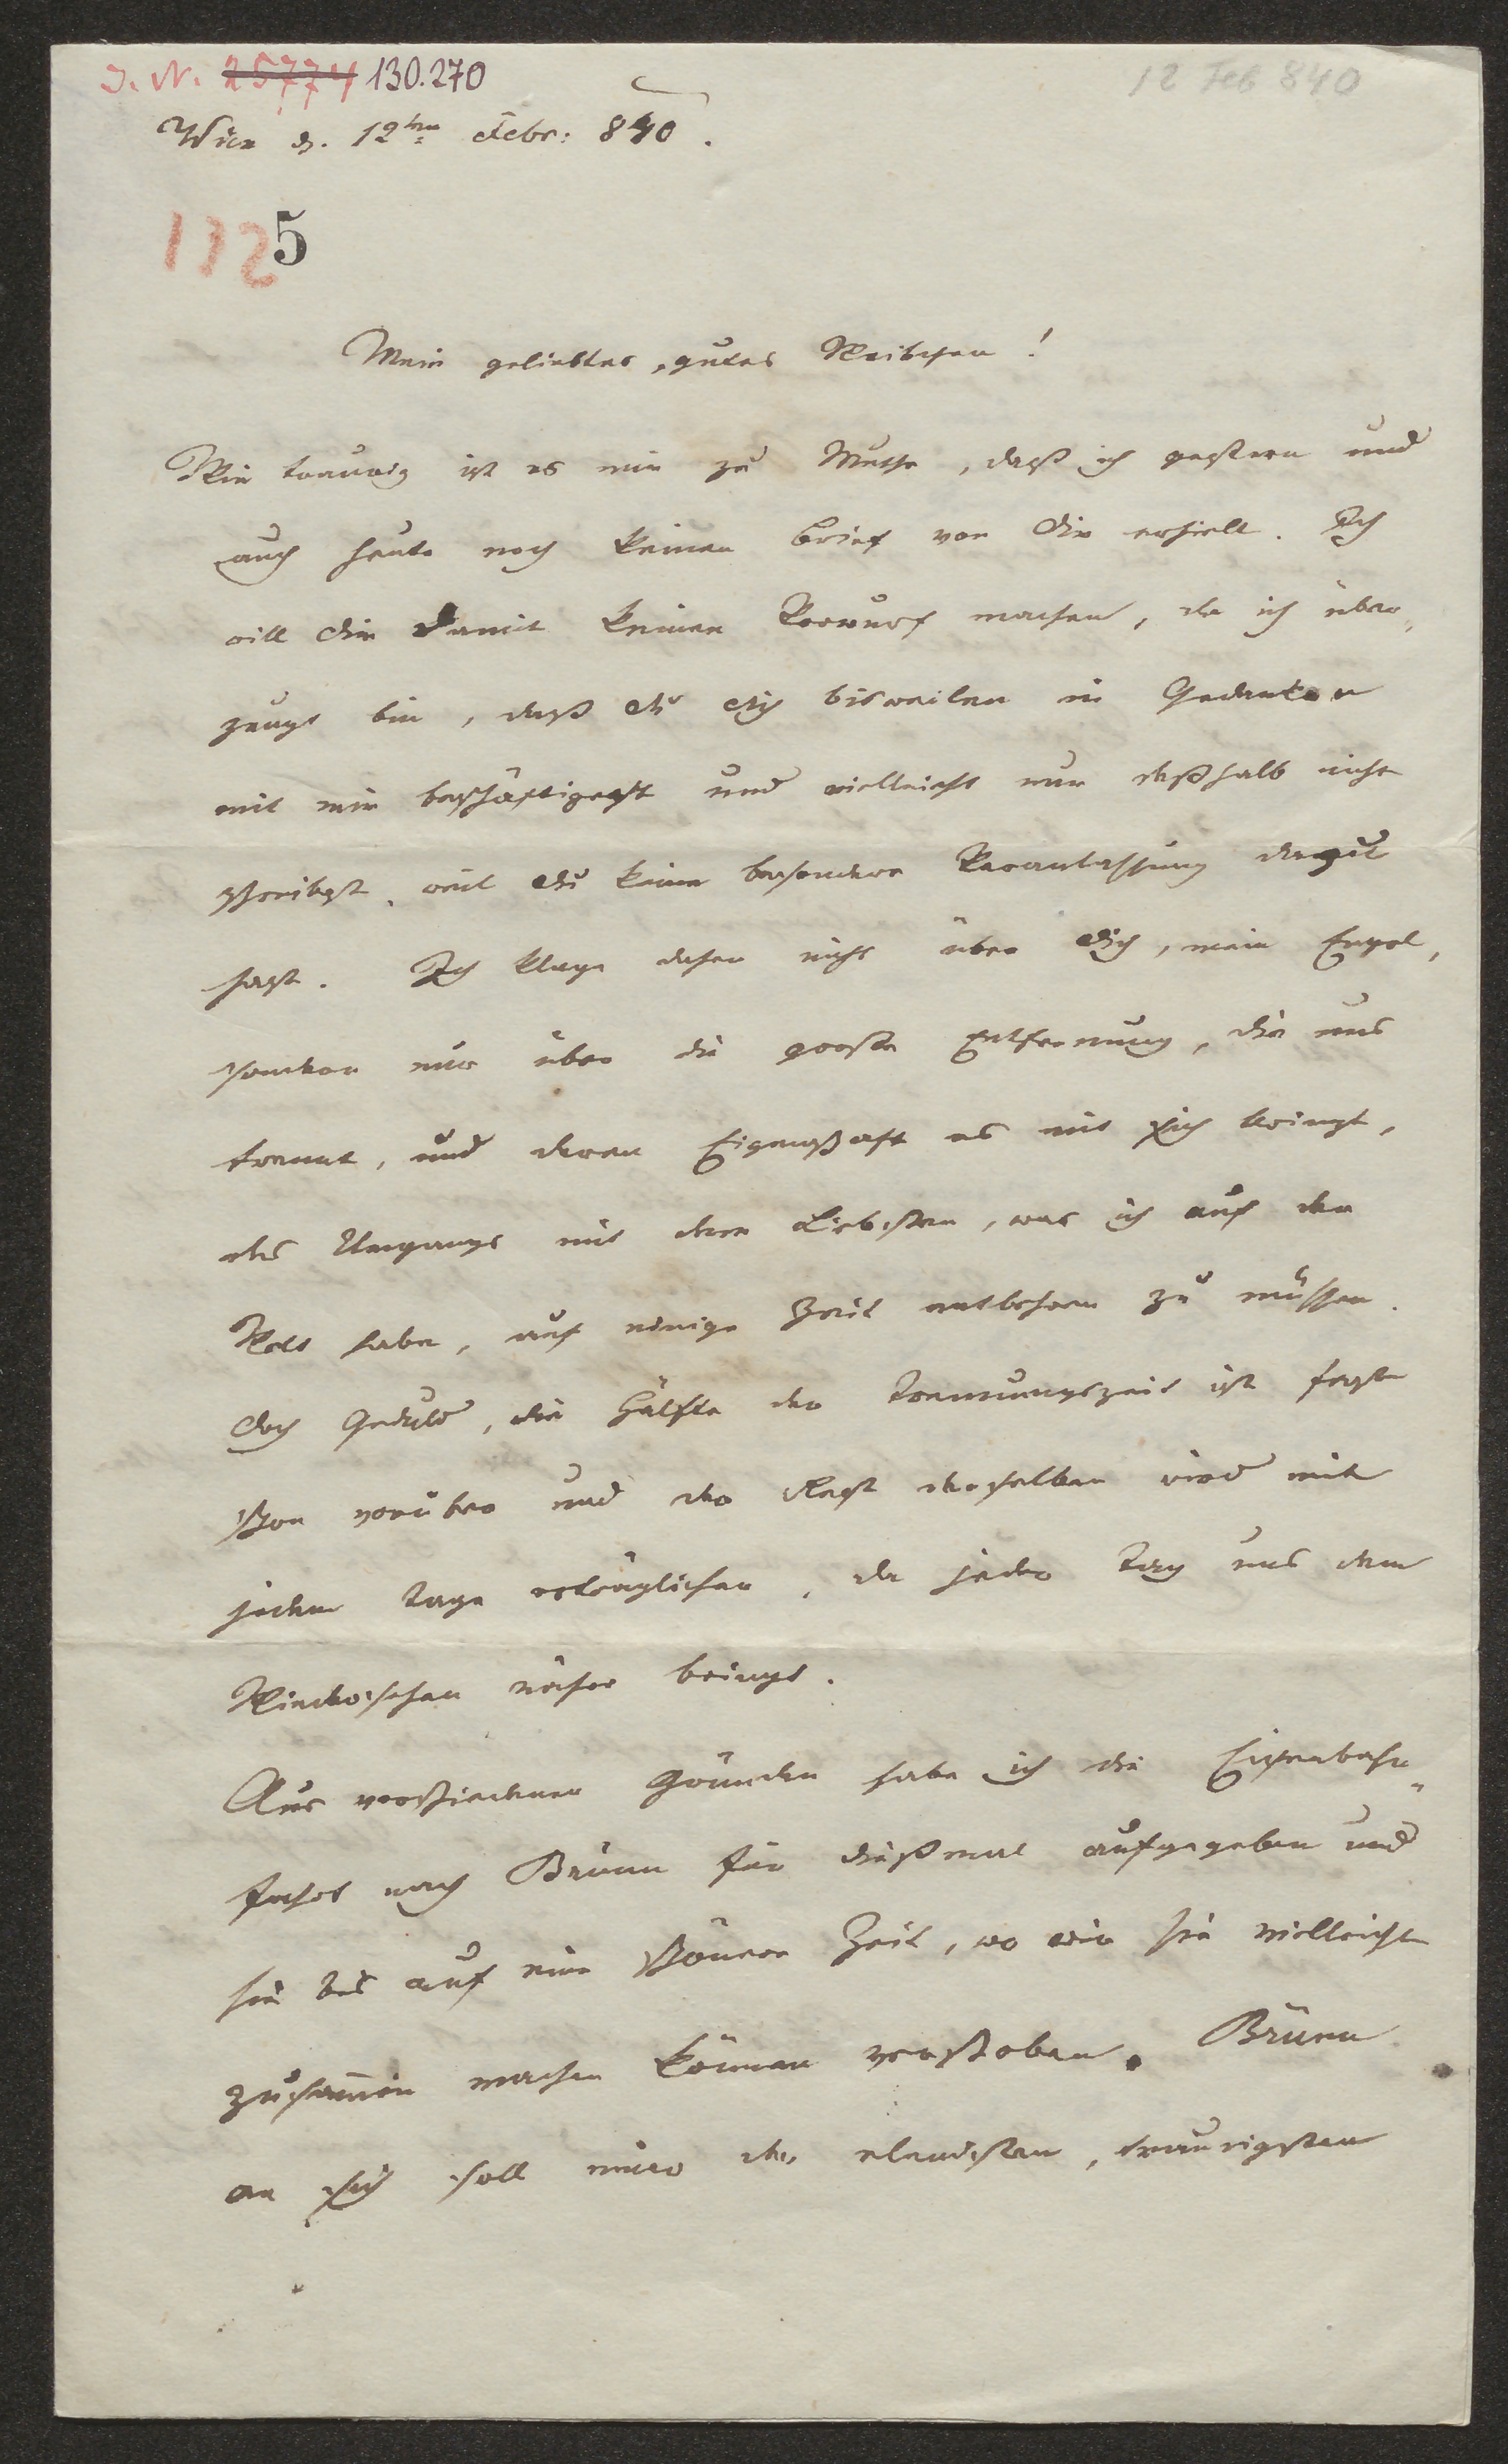 I. N. 25774 130.270
12 Feb 840
Wien d. 12ten Febr: 840.
1325
Mein geliebtes, gutes Weibchen!
Wie traurig ist es mir zu Muthe, daß ich gestern und
auch heute noch keinen Brief von Dir erhielt. Ich
will Dir damit keinen Vorwurf machen, da ich über„
zeugt bin, daß Du Dich bisweilen in Gedanken
mit mir beschäftigest und vielleicht nur deßhalb nicht
schreibst, weil Du keine besondere Veranlassung dazu
hast. Ich klage daher nicht über Dich, mein Engel,
sondern nur über die große Entfernung, die uns
trennt, und deren Eigenschaft es mit sich bringt,
des Umgangs mit dem Liebsten, was ich auf der
Welt habe, auf einige Zeit entbehren zu müssen.
Doch Geduld, die Hälfte der Trennungszeit ist fast
schon vorüber und der Rest derselben wird mit
jedem Tage erträglicher, da jeder Tag uns dem
Wiedersehen näher bringt.
Aus verschiednen Gründen habe ich die Eisenbahn„
fahrt nach Brünn für dießmal aufgegeben und
sie bis auf eine schönere Zeit, wo wir sie vielleicht
zusammen machen können verschoben. Brünn
an sich soll eines der elendsten, traurigsten